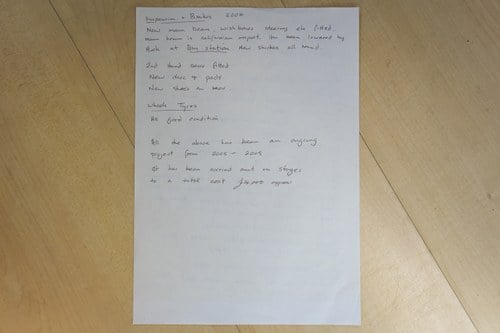 Suspension & Brakes 2004
New main beam, wishbones steering etc fitted
main beam is californian import. Has been lowered by
at Bug Station New shocks all round.
2nd hand fitted
New discs & pads
New shoes on rear
Wheels Tyres
As good condition.
All the above has been an ongoing
project from 2003 - 2005
It has been carried out in stages
to a total cost approx